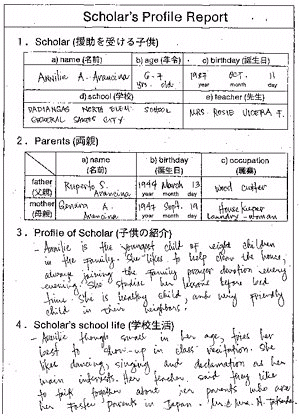 Scholar's Profile Report
1. Scholar (援助を受ける子供)
a) name (名前) b) age (年令) c) birthday (誕生日)
Analie A. Arancina 6-7 yrs. old 1987 year OCT. month 11 day
d) school (学校) e) teacher (先生)
DADIANGAS NORTH ELEM. SCHOOL MRS. ROSIE VICERA T.
GENERAL SANTOS CITY
2. Parents (両親)
a) name (名前) b) birthday (誕生日) c) occupation (職業)
father (父親) Ruperto S. Arancina 1944 year March month 13 day Wood Cutter
mother (母親) Genara A. Arancina 1947 year Sept. month 19 day House Keeper Laundry-woman
3. Profile of Scholar (子供の紹介)
- Analie is the youngest child of eight children
in the family. She likes to help clean the house,
always joining the family prayer devotion every
evening. She studies her lessons before bed
time. She is healthy child, and very friendly
child in their neighbors.
4. Scholar's school life (学校生活)
- Analie though small in her age, tries her
best to show-up in class recitation. She
likes dancing, singing and declamation as her
main interests. Her teacher said they like
to talk together about her parents who are
her Foster parents in Japan - Mr. & Mrs. H.